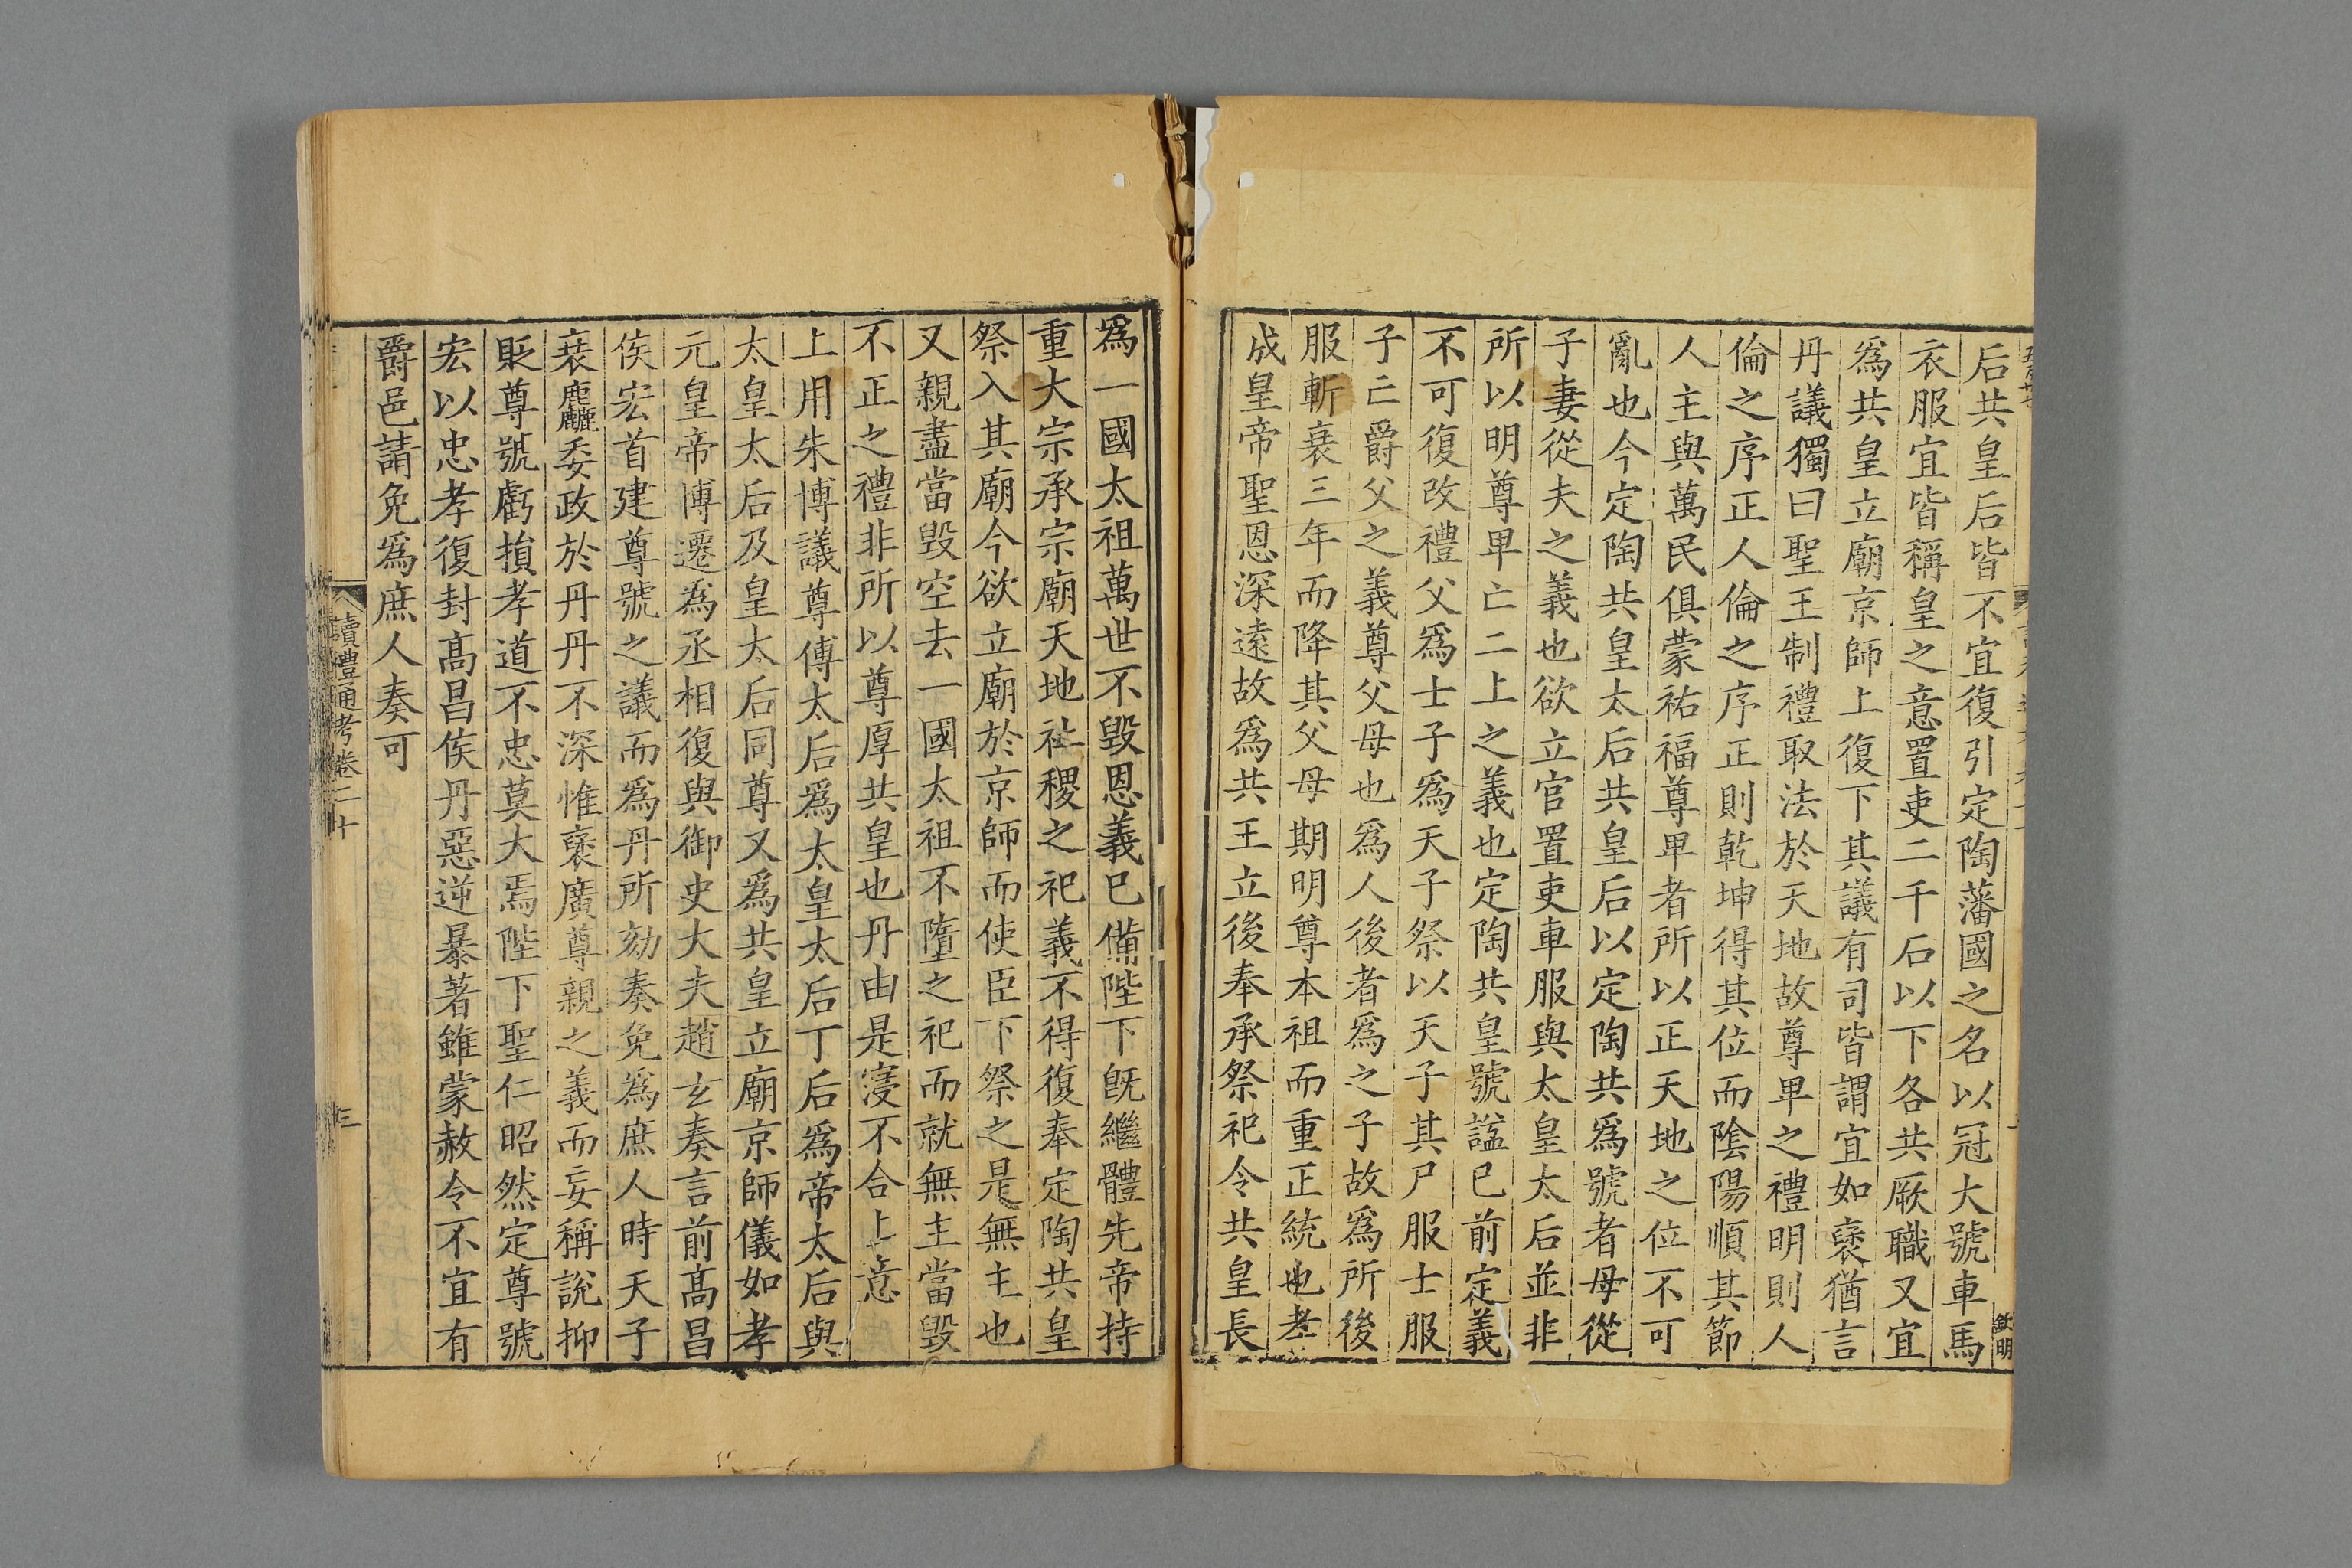 后共皇后皆不宜復引定陶藩國之名以冠大號車馬
衣服宜皆稱皇之意置吏二千石以下各共厥職又宜
爲共皇立廟京師上復下其議有司皆謂宜如襃猶言
丹議獨曰聖王制禮取法於天地故尊卑之禮明則人
倫之序正人倫之序正則乾坤得其位而陰陽順其節
人主與萬民俱蒙祐福尊卑者所以正天地之位不可
亂也今定陶共皇太后共皇后以定陶共爲號者母從
子妻從夫之義也欲立官置吏車服與太皇太后並非
所以明尊卑亡二上之義也定陶共皇號諡已前定義
不可復改禮父爲士子爲天子祭以天子其尸服士服
子亡爵父之義尊父母也爲人後者爲之子故爲所後
服斬衰三年而降其父母期明尊本祖而重正統也孝
成皇帝聖恩深遠故爲共王立後奉承祭祀令共皇長
欽明
爲一國太祖萬世不毀恩義已備陛下旣繼體先帝持
重大宗承宗廟天地社稷之祀義不得復奉定陶共皇
祭入其廟今欲立廟於京師而使臣下祭之是無主也
又親盡當毀空去一國太祖不墮之祀而就無主當毀
不正之禮非所以尊厚共皇也丹由是寖不合上意
上用朱博議尊傅太后爲太皇太后丁后爲帝太后與
太皇太后及皇太后同尊又爲共皇立廟京師儀如孝
元皇帝博遷爲丞相復與御史大夫趙玄奏言前高昌
侯宏首建尊號之議而爲丹所劾奏免爲庶人時天子
衰麤委政於丹丹不深惟襃廣尊親之義而妄稱說抑
貶尊號虧損孝道不忠莫大焉陛下聖仁昭然定尊號
宏以忠孝復封高昌侯丹惡逆暴著雖蒙赦令不宜有
爵邑請免爲庶人奏可
讀禮通考卷二十
三